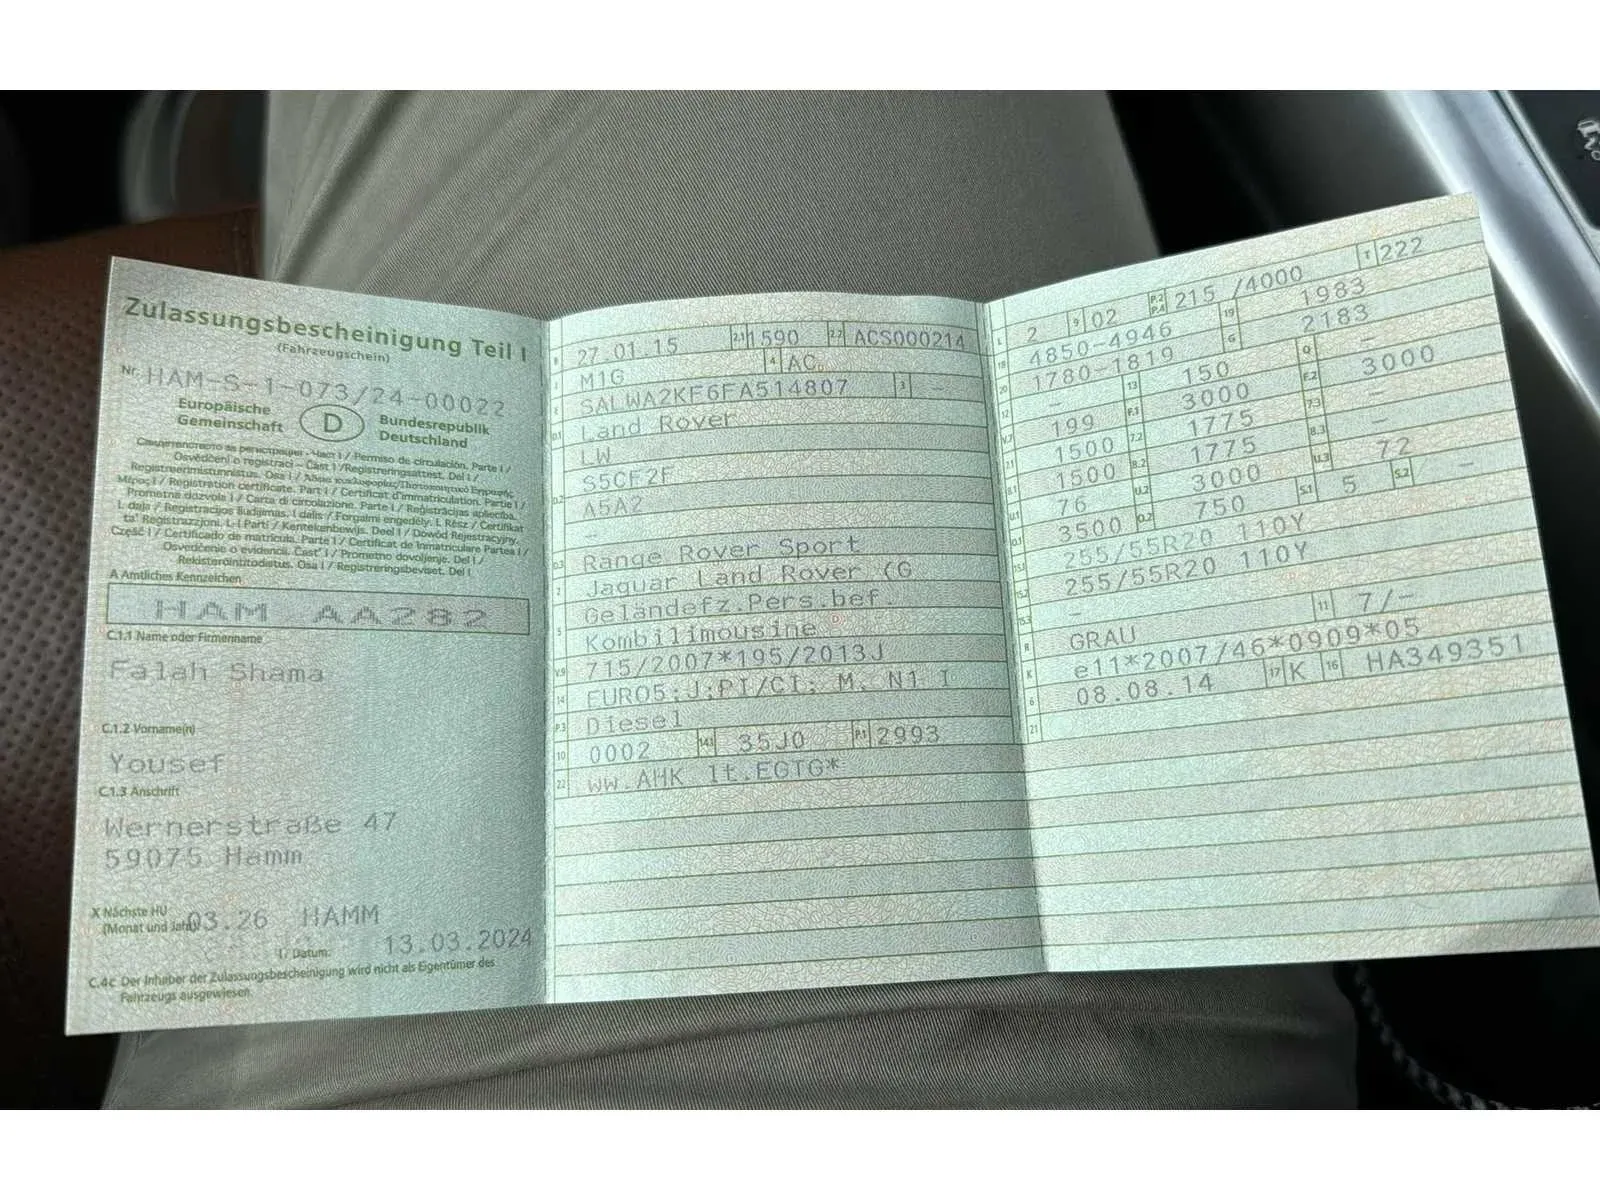 Zulassungsbescheinigung Teil I
(Fahrzeugschein)
Nr. HAM-S-1-073/24-00022
Europäische Gemeinschaft
D
Bundesrepublik Deutschland
Свидетелство за регистрация - Част I / Permiso de circulación. Parte I /
Osvědčení o registraci – Část I / Registreringsattest. Del I /
Registreerimistunnistus. Osa I / Άδεια κυκλοφορίας/Πιστοποιητικό Εγγραφής
Μέρος I / Registration certificate. Part I / Certificat d'immatriculation. Partie I /
Prometna dozvola I / Carta di circolazione. Parte I / Reģistrācijas apliecība.
I. daļa / Registracijos liudijimas. I dalis / Forgalmi engedély. I. Rész / Certifikat
ta' Reġistrazzjoni. L-I Parti / Kentekenbewijs. Deel I / Dowód Rejestracyjny.
Część I / Certificado de matrícula. Parte I / Certificat de înmatriculare Partea I /
Osvedčenie o evidencii. Časť I / Prometno dovoljenje. Del I /
Rekisteröintitodistus. Osa I / Registreringsbeviset. Del I
A Amtliches Kennzeichen
HAM AA282
C.1.1 Name oder Firmenname
Falah Shama
C.1.2 Vorname(n)
Yousef
C.1.3 Anschrift
Wernerstraße 47
59075 Hamm
X Nächste HU
(Monat und Jahr) 03.26 HAMM
I / Datum: 13.03.2024
C.4c Der Inhaber der Zulassungsbescheinigung wird nicht als Eigentümer des
Fahrzeugs ausgewiesen.
B 27.01.15 2.1 1590 2.2 ACS000214
J M1G 4 AC
E SALWA2KF6FA514807 3 –
D.1 Land Rover
LW
D.2 S5CF2F
A5A2
–
D.3 Range Rover Sport
2 Jaguar Land Rover (G
5 Geländefz.Pers.bef.
Kombilimousine
V.9 715/2007*195/2013J
14 EURO5;J;PI/CI; M, N1 I
P.3 Diesel
10 0002 14.1 35J0 P.1 2993
22 WW.AHK lt.EGTG*
L 2 9 02 P.2 P.4 215 /4000 T 222
18 4850-4946 19 1983
20 1780-1819 G 2183
12 – 13 150 Q –
V.7 199 F.1 3000 F.2 3000
7.1 1500 7.2 1775 7.3 –
8.1 1500 8.2 1775 8.3 –
U.1 76 U.2 3000 U.3 72
O.1 3500 O.2 750 S.1 5 S.2 –
15.1 255/55R20 110Y
15.2 255/55R20 110Y
15.3 –
R GRAU 11 7/–
K e11*2007/46*0909*05
6 08.08.14 17 K 16 HA349351
21